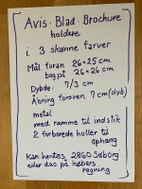 Avis · Blad · Brochure
holdere
i 3 skønne farver
Mål foran 26x25 cm
bagpå 26x26 cm
Dybde: 7/3 cm
Åbning foroven 7 cm (dyb)
metal
med ramme til indstik
2 forborede huller til
ophæng
Kan hentes 2860 Søborg
eller dao på købers
regning